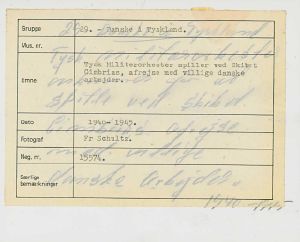 Gruppe 2929. - Danske i Tyskland.
Mus. nr.
Emne
Tysk Militærorkester spiller ved Skibet
Cimbrias, afrejse med villige danske
arbejder.
spille ved Skibet
Dato 1940-1945.
Cimbrias afrejse
Fotograf Fr Schultz.
med villige
Neg. nr. 15574.
Særlige
bemærkninger
danske Arbejder.
1940-1945